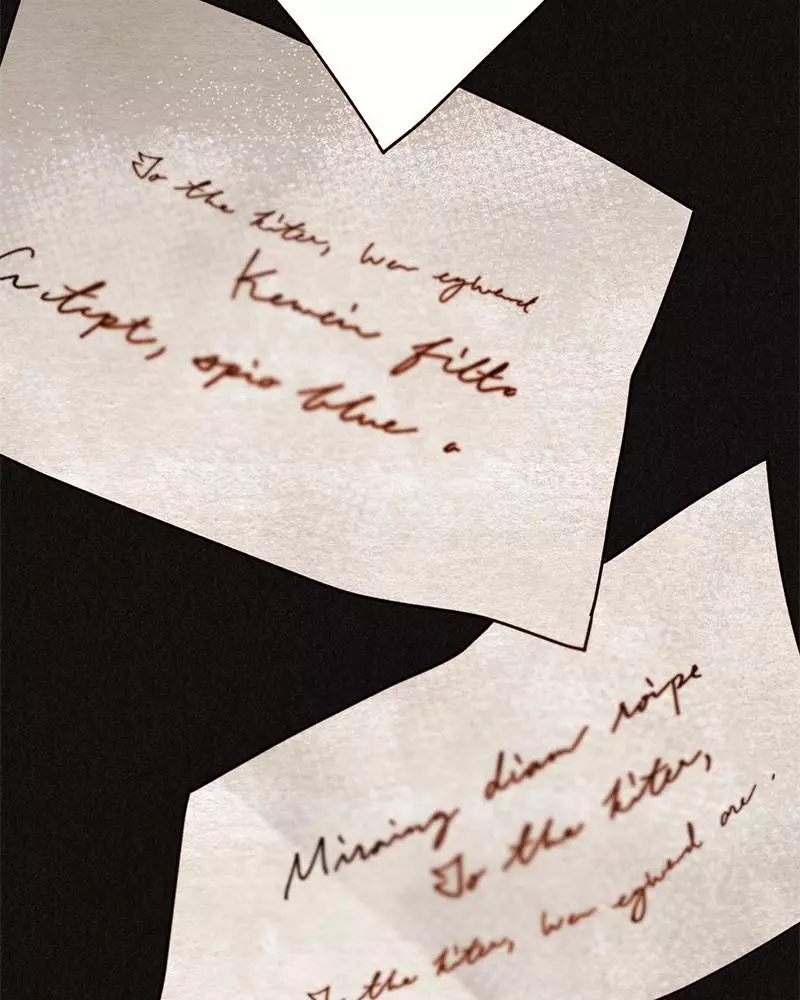 To the hiter, wer eghwerd
Kewein filto
tept, spio blue. a
Miraing diam roipe
To the hiter,
To the hiter, wer eghwerd are.